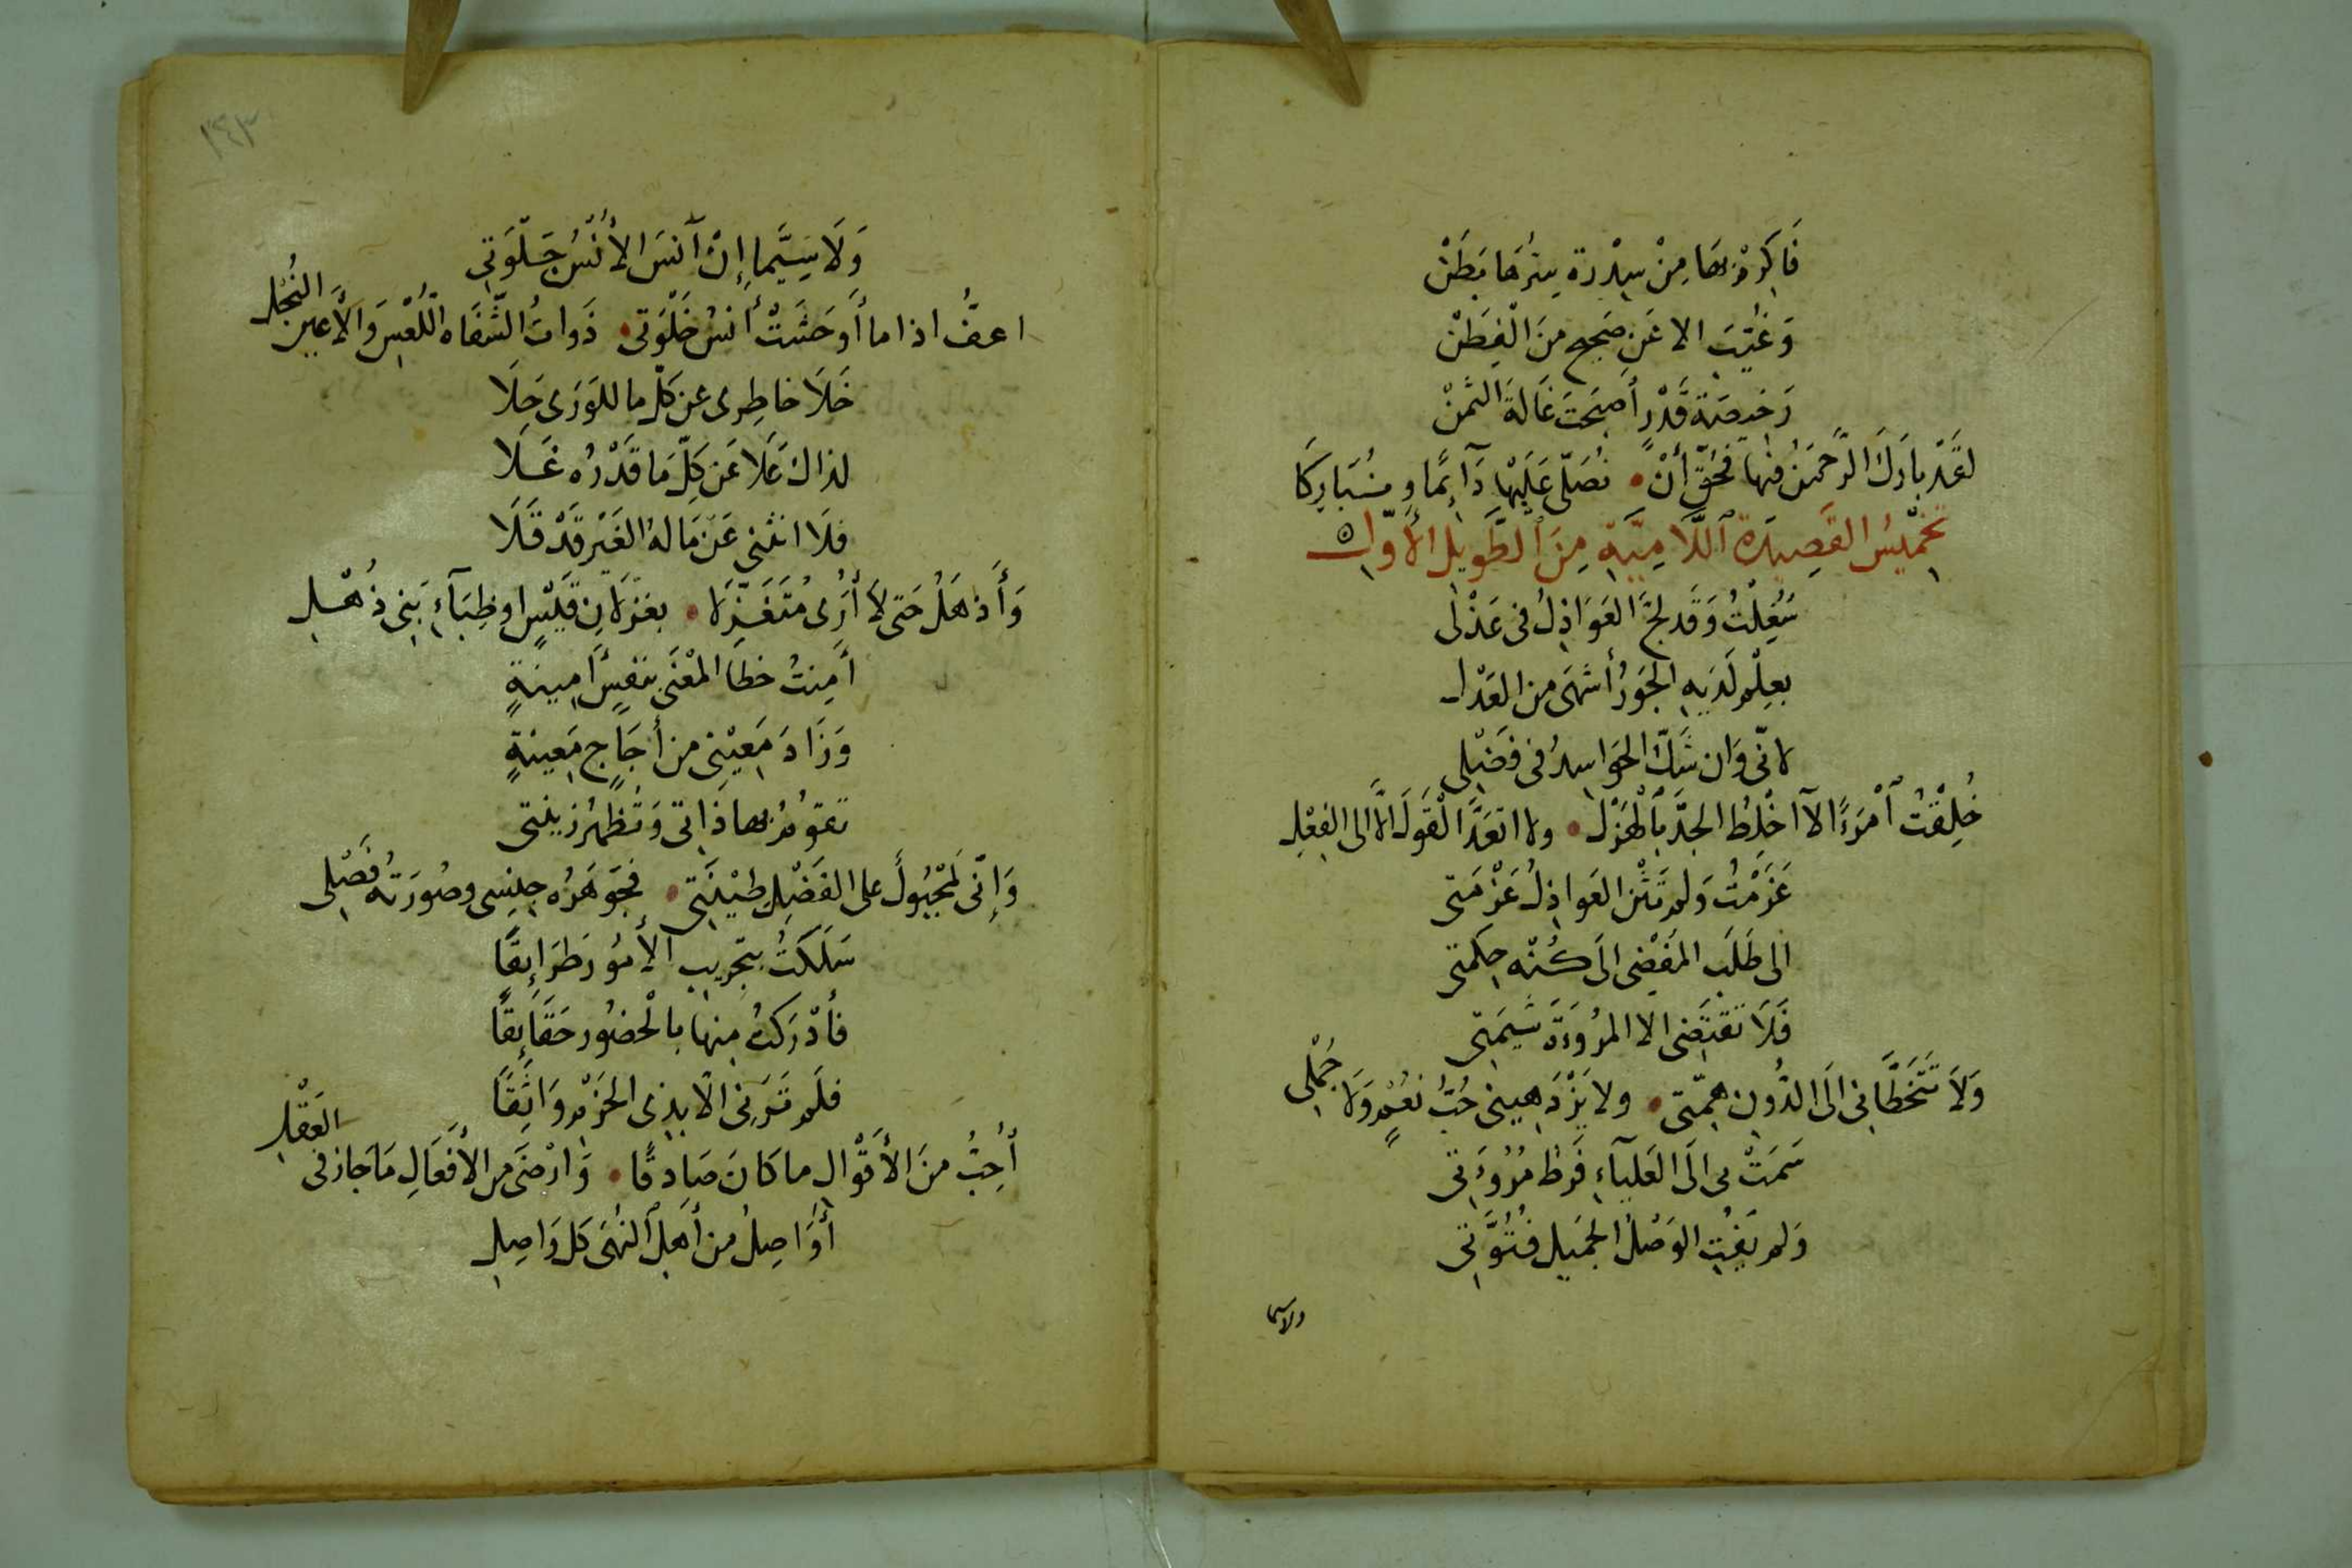 فَاَكْرِمْ بِهَا مِنْ سِدْرَة سِرُهَا بَطَنْ
وَغُيّبَت الا عَن صَحِيحٍ مِنَ الْفِطَنْ
رَخِيصَة قَدْرٍ أَصْبَحَتْ غَالةَ الثَمنْ
لَقَدْ بَارَكَ الرَّحْمَنُ فِيهَا فَحُقَّ أَنْ • نُصَلّى عَلَيْهَا دَآئِمًا وَنُبَارِكَا
تَخْمِيْسُ القَصِيدَةِ ٱللَّامِيَّةِ مِنَ ٱلطَّوِيلِ الأَوّلِ ٥
شُغِلْتُ وَقَد لجَّ العَوَاذِلُ فى عَذْلى
بِعِلْمٍ لَدَيْهِ الجَوْرُ أَشهَى من العَدْل
لانّى وَان شَكّ الحَوَاسِدُ فى فَضْلِى
خُلِقْتُ ٱمْرَءًا لآ اَخْلِطُ الجدَّ بِٱلْهَزْلِ • ولا اتعَدَّ الْقَولَ الَّا الى الفِعْلِ
عَزَمْتُ وَلم تَثْنِ العَواذِلُ عَزْمَتى
الى طَلَبِ المُفْضِى الَى كُنْهِ حِكمَتى
فَلَا تَقْتَضى الا المرُوءَةَ شِيمَتِى
وَلَا تَتَخَطَّانِى الَى الدُّونِ هِمّتِى • ولا يَزْدَهِيِنى حُبُّ نُعْمٍ وَلَا جُمْلِى
سَمَتْ بى الَى العَليَآءِ فَرطُ مُرُوءَتِى
وَلم يَفُتِ الوَصْلُ الجَمِيل فُتُوَّتِى
ولاسيما
١٤٣
وَلَا سِيَّمَا إِنْ آنَسَ الأُنْسُ جَلْوَتِى
اعفُّ اذا ما أَوحَشَتْ أُنسُ خَلْوَتى • ذَوَاتُ الشّفَاه اللُّعْسِ وَالأَعيُن النُجْلِ
خَلَا خاطِرى عن كلّ ما للوَرَى حَلَا
لذاك عَلَا عَن كلِّ مَا قَدْرُه غَلَا
فلَا انثنى عَن مَا لهُ الغَيْر قَدْ قَلَا
وَأَذهَلُ حَتى لَا أُرَى مُتَغَزِّلَا • بغزلَانِ قَيْسٍ او ظِبَآءِ بَنِى ذُهْلِ
أَمِنتُ خطَا المْعْنَى بنَفسٍ أَمِينةٍ
وَزَادَ مَعِيْنِى من أجَاجٍ مَعِينةٍ
تقومُ بها ذَاتى وَتُظهِرُ زينتى
وَإِنّى لمَجْبُولٌ على الفَضْلِ طِيْنَتِى • فجَوهَرُه جِنسِى وصُورَتُه فَصْلِى
سَلَكْتُ بتَجرِيبِ الأُمُورِ طَرَائِقًا
فأَدْرَكتُ مِنها بالْحضُورِ حَقَائِقًا
فلَم تَرَنِى الّا بِذِى الحَزْمِ وَاثِقًا
أُحِبُّ مِنَ الأَقْوَالِ ما كَانَ صَادِقًا • وَارْضَى من الأَفعَالِ مَا جَازَ فى العَقْلِ
أُوَاصِلُ من أَهلِ ٱلنُهَى كلَ وَاصِلِ